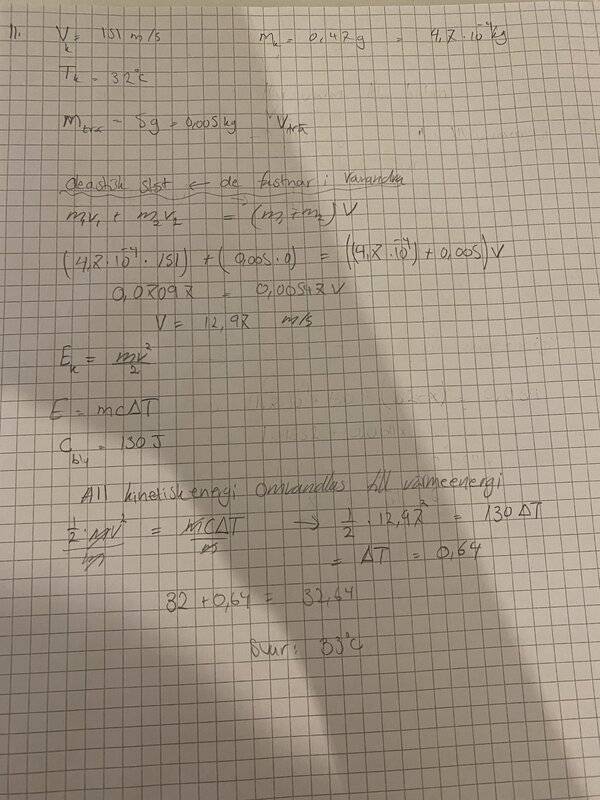 11. V_k = 151 m/s m_k = 0,47g = 4,7·10⁻⁴kg
T_k = 32°C
m_trä = 5g = 0,005kg V_trä
oelastisk stöt ← de fastnar i varandra
m₁v₁ + m₂v₂ = (m₁+m₂)V
(4,7·10⁻⁴·151) + (0,005·0) = ((4,7·10⁻⁴)+0,005)V
0,07097 = 0,00547 V
V = 12,97 m/s
E_k = mv²/2
E = mcΔT
C_bly = 130 J
All kinetisk energi omvandlas till värmeenergi
1/2·mv²/m = mCΔT/m → 1/2·12,97² = 130ΔT
= ΔT = 0,64
32 + 0,64 = 32,64
Svar: 33°C